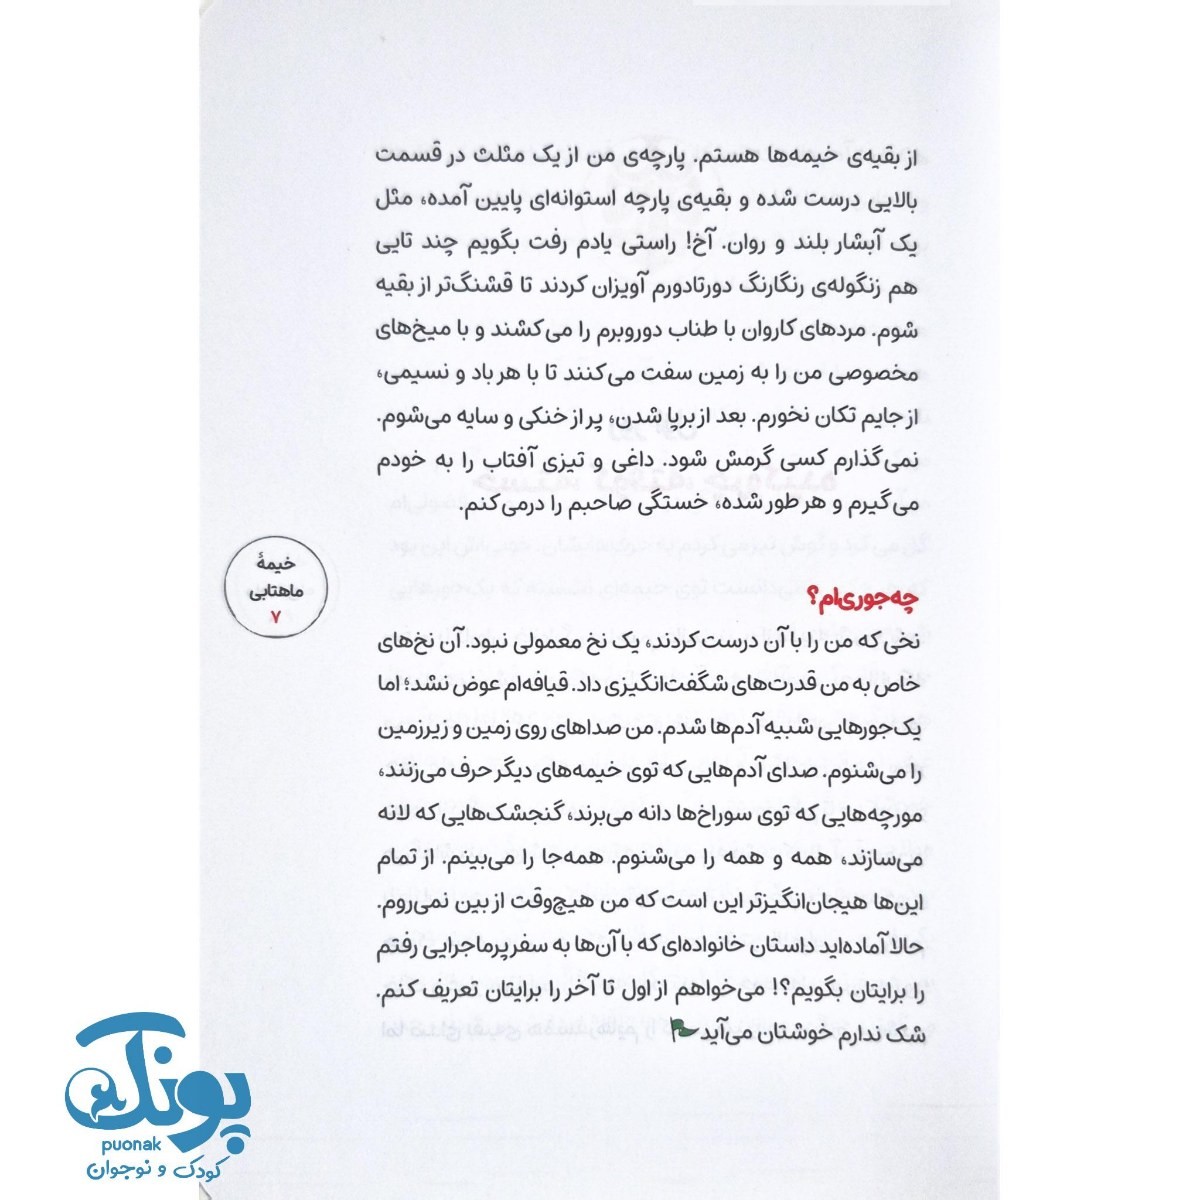 از بقیه‌ی خیمه‌ها هستم. پارچه‌ی من از یک مثلث در قسمت
بالایی درست شده و بقیه‌ی پارچه استوانه‌ای پایین آمده، مثل
یک آبشار بلند و روان. آخ! راستی یادم رفت بگویم چند تایی
هم زنگوله‌ی رنگارنگ دورتادورم آویزان کردند تا قشنگ‌تر از بقیه
شوم. مردهای کاروان با طناب دوروبرم را می‌کشند و با میخ‌های
مخصوصی من را به زمین سفت می‌کنند تا با هر باد و نسیمی،
از جایم تکان نخورم. بعد از برپا شدن، پر از خنکی و سایه می‌شوم.
نمی‌گذارم کسی گرمش شود. داغی و تیزی آفتاب را به خودم
می‌گیرم و هر طور شده، خستگی صاحبم را درمی‌کنم.
خیمهٔ
ماهتابی
۷
چه‌جوری‌ام؟
نخی که من را با آن درست کردند، یک نخ معمولی نبود. آن نخ‌های
خاص به من قدرت‌های شگفت‌انگیزی داد. قیافه‌ام عوض نشد؛ اما
یک‌جورهایی شبیه آدم‌ها شدم. من صداهای روی زمین و زیرزمین
را می‌شنوم. صدای آدم‌هایی که توی خیمه‌های دیگر حرف می‌زنند،
مورچه‌هایی که توی سوراخ‌ها دانه می‌برند، گنجشک‌هایی که لانه
می‌سازند، همه و همه را می‌شنوم. همه‌جا را می‌بینم. از تمام
این‌ها هیجان‌انگیزتر این است که من هیچ‌وقت از بین نمی‌روم.
حالا آماده‌اید داستان خانواده‌ای که با آن‌ها به سفر پرماجرایی رفتم
را برایتان بگویم؟! می‌خواهم از اول تا آخر را برایتان تعریف کنم.
شک ندارم خوشتان می‌آید
پونک
puonak
کودک و نوجوان